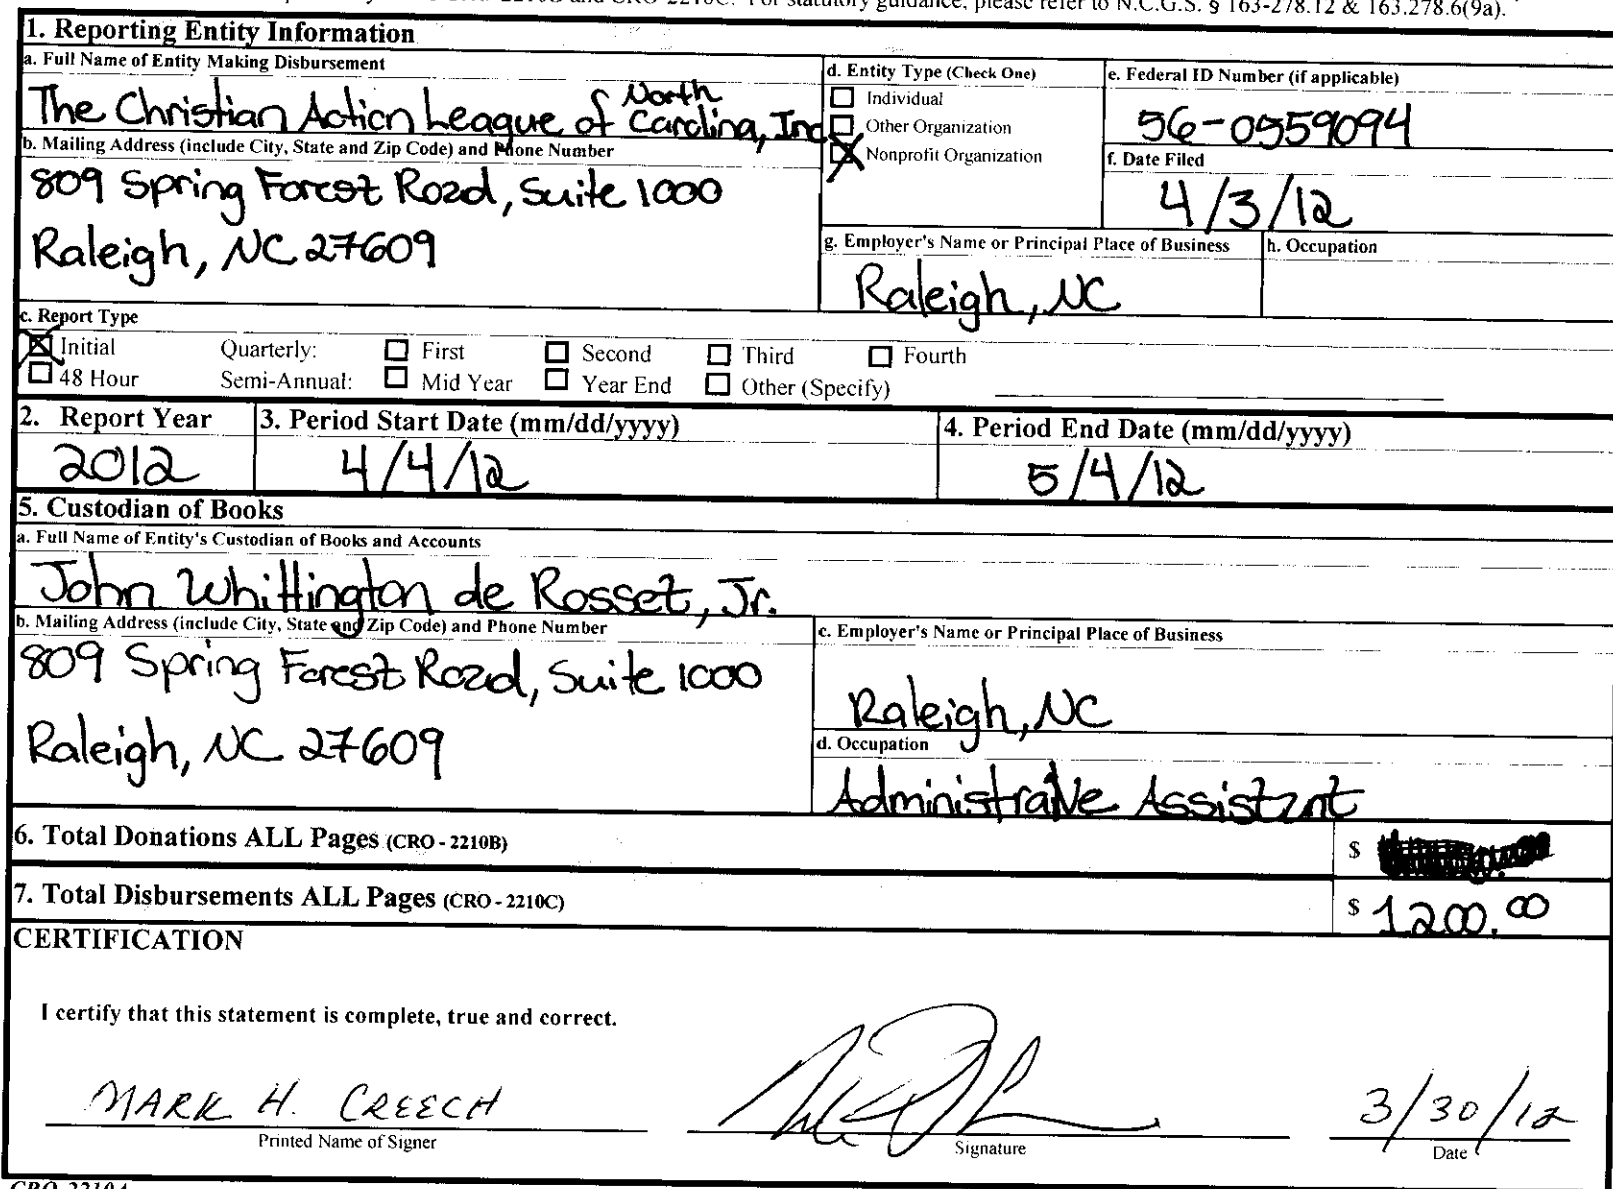 and CRO-2210C. For statutory guidance, please refer to N.C.G.S. § 163-278.12 & 163.278.6(9a).
1. Reporting Entity Information
a. Full Name of Entity Making Disbursement
The Christian Action League of North Carolina, Inc
d. Entity Type (Check One)
Individual
Other Organization
Nonprofit Organization
e. Federal ID Number (if applicable)
56-0559094
f. Date Filed
4/3/12
b. Mailing Address (include City, State and Zip Code) and Phone Number
809 Spring Forest Road, Suite 1000
Raleigh, NC 27609
g. Employer's Name or Principal Place of Business
Raleigh, NC
h. Occupation
c. Report Type
Initial Quarterly: First Second Third Fourth
48 Hour Semi-Annual: Mid Year Year End Other (Specify)
2. Report Year
2012
3. Period Start Date (mm/dd/yyyy)
4/4/12
4. Period End Date (mm/dd/yyyy)
5/4/12
5. Custodian of Books
a. Full Name of Entity's Custodian of Books and Accounts
John Whittington de Rosset, Jr.
b. Mailing Address (include City, State and Zip Code) and Phone Number
809 Spring Forest Road, Suite 1000
Raleigh, NC 27609
c. Employer's Name or Principal Place of Business
Raleigh, NC
d. Occupation
Administrative Assistant
6. Total Donations ALL Pages (CRO - 2210B) $
7. Total Disbursements ALL Pages (CRO - 2210C) $ 1200.00
CERTIFICATION
I certify that this statement is complete, true and correct.
MARK H. CREECH
Printed Name of Signer
Signature
3/30/12
Date
CRO-2210A